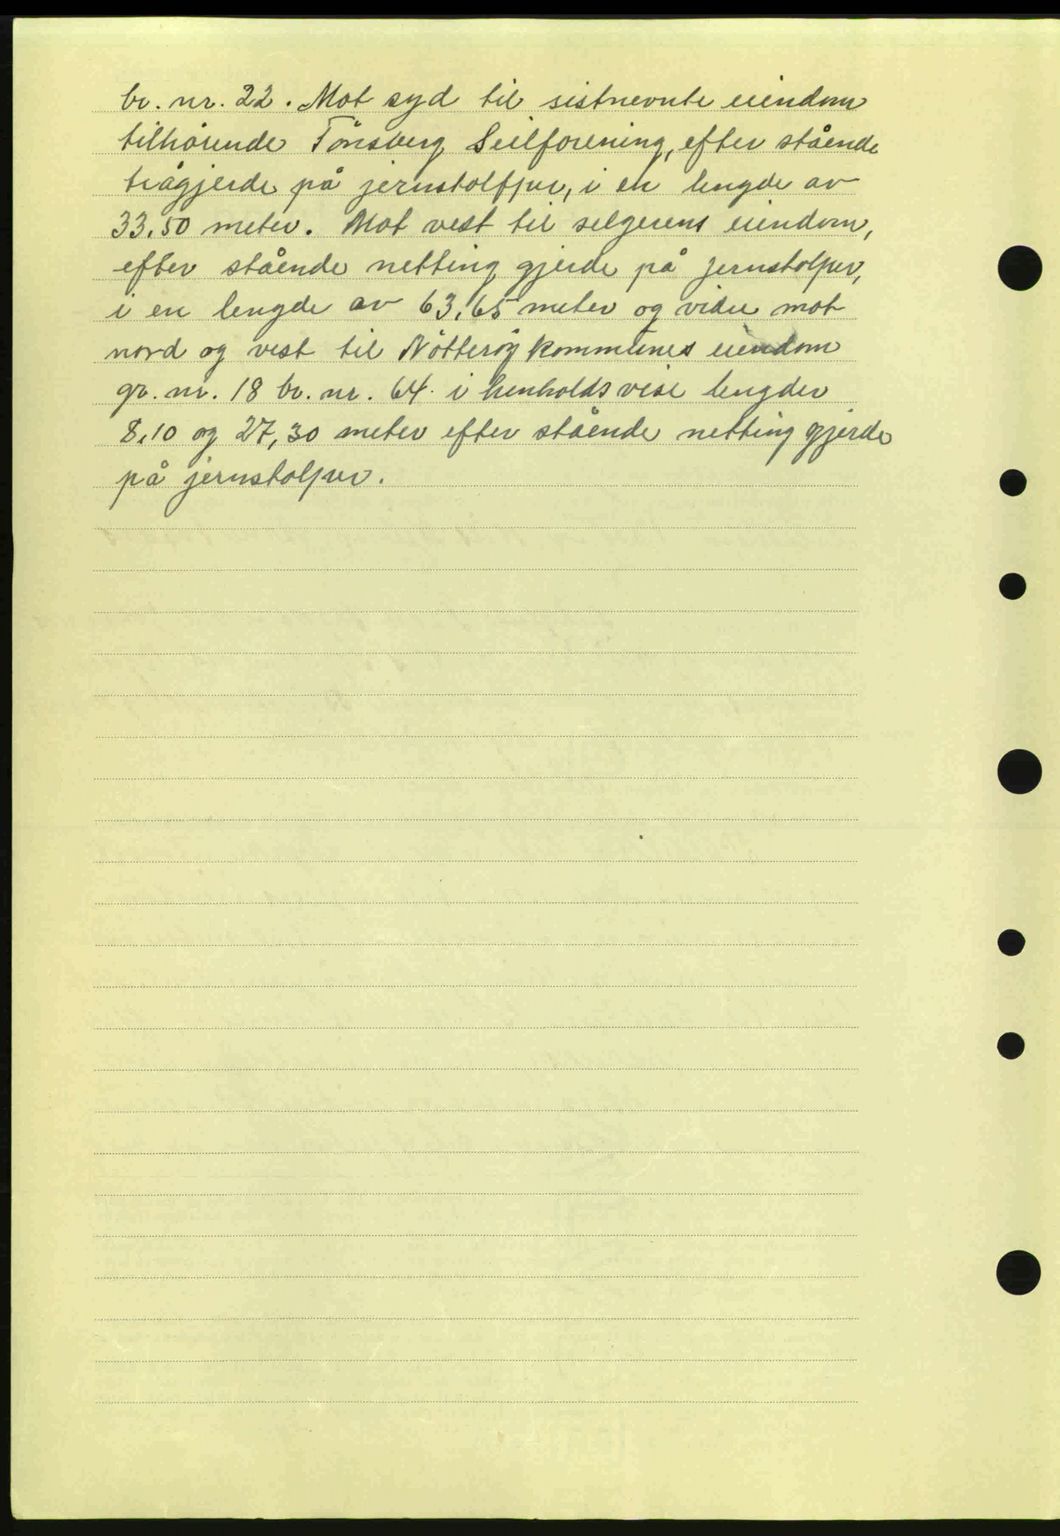 br. nr. 22. Mot syd til sistnevnte eiendom
tilhørende Tönsberg Seilforening, efter stående
trågjerde på jernstolpper, i en lengde av
33.50 meter. Mot vest til selgerens eiendom,
efter stående netting gjerde på jernstolper,
i en lengde av 63,65 meter og videre mot
nord og vest til Nötteröy kommunes eiendom
gr. nr. 18 br. nr. 64 i henholdsvise lengder
8,10 og 27,30 meter efter stående netting gjerde
på jernstolper.